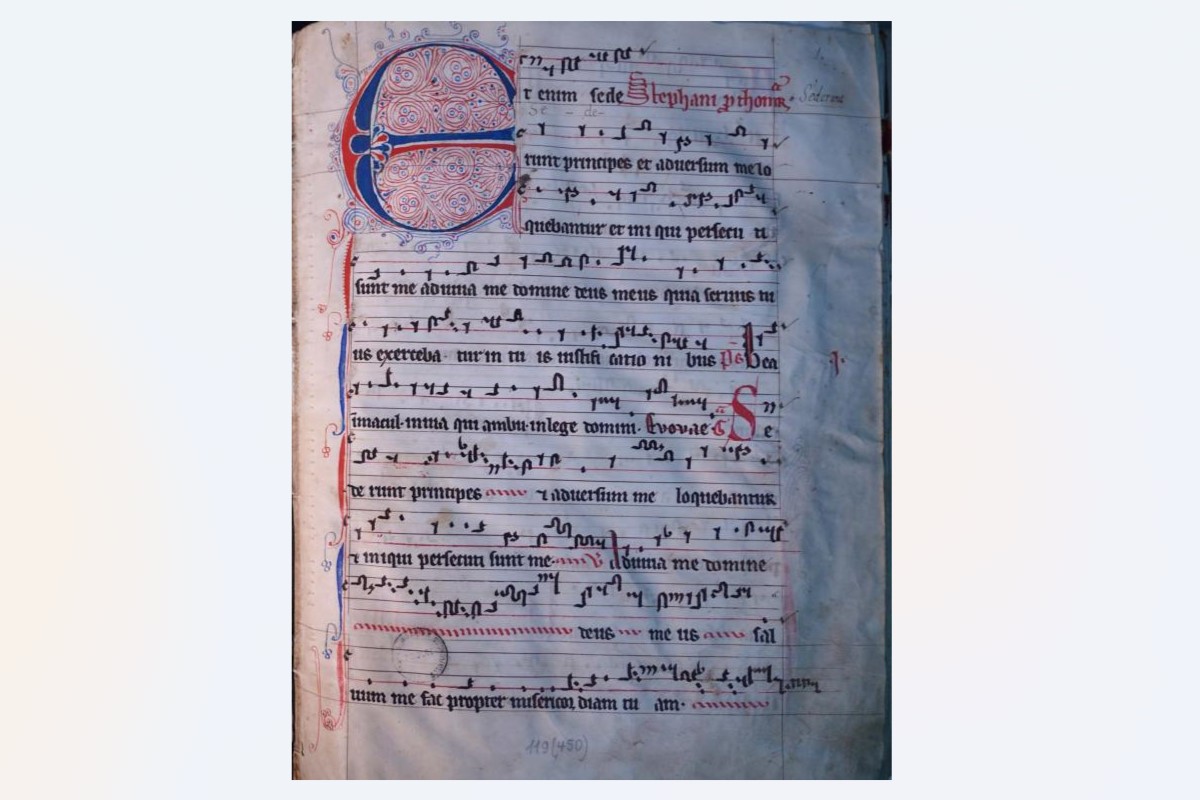 Et enim sede Stephani
Se - de-
runt principes et adversum me lo
quebantur et ini qui persecu ti
sunt me adiuva me domine deus meus quia servus tu
us exerceba tur in tu is iustifi catio ni bus Ps Bea
ti imacul in via qui ambu in lege domini. Evovae S e
de runt principes et adversum me loquebantur
et iniqui persecuti sunt me V Adiuva me domine
deus me us sal
vum me fac propter misericor diam tu am.
119(450)